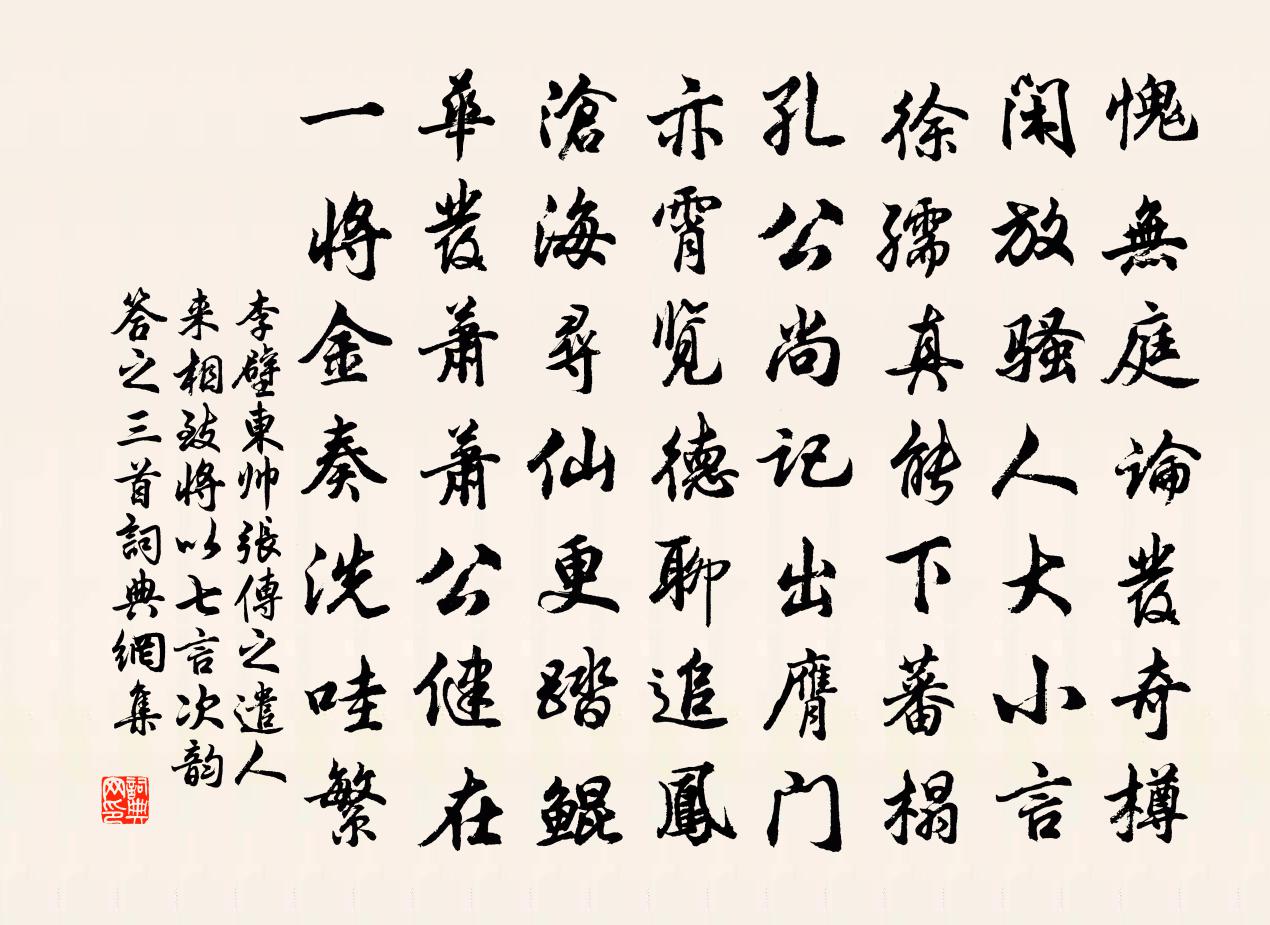 愧無庭論發奇樽
閑放騷人大小言
徐孺真能下蕃榻
孔公尚記出膺門
亦霄覽德聊追鳳
滄海尋仙更踏鯤
華發蕭蕭公健在
一將金奏洗哇繁
李壁東帅張傳之遣人
来相致将以七言次韵
答之三首詞典網集
詞典网印